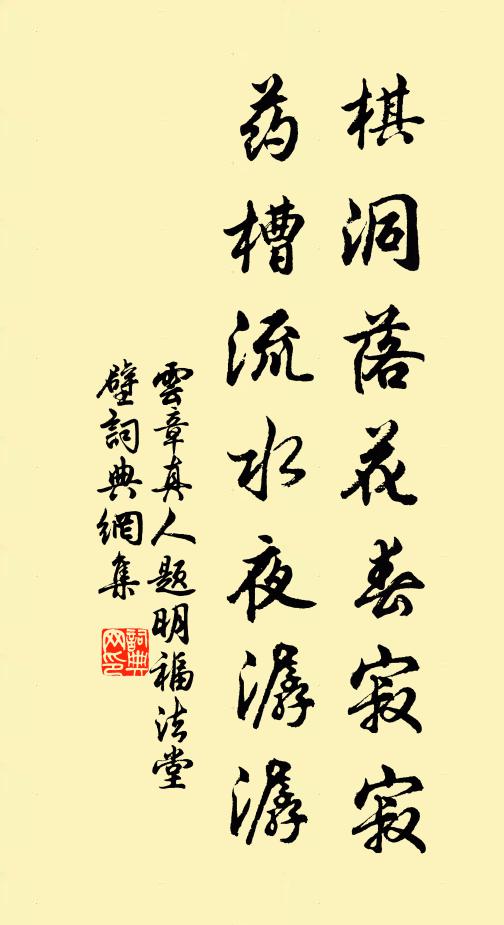 棋洞落花春寂寂
药槽流水夜潺潺
雲章真人题明福法堂
壁詞典網集
詞典网印